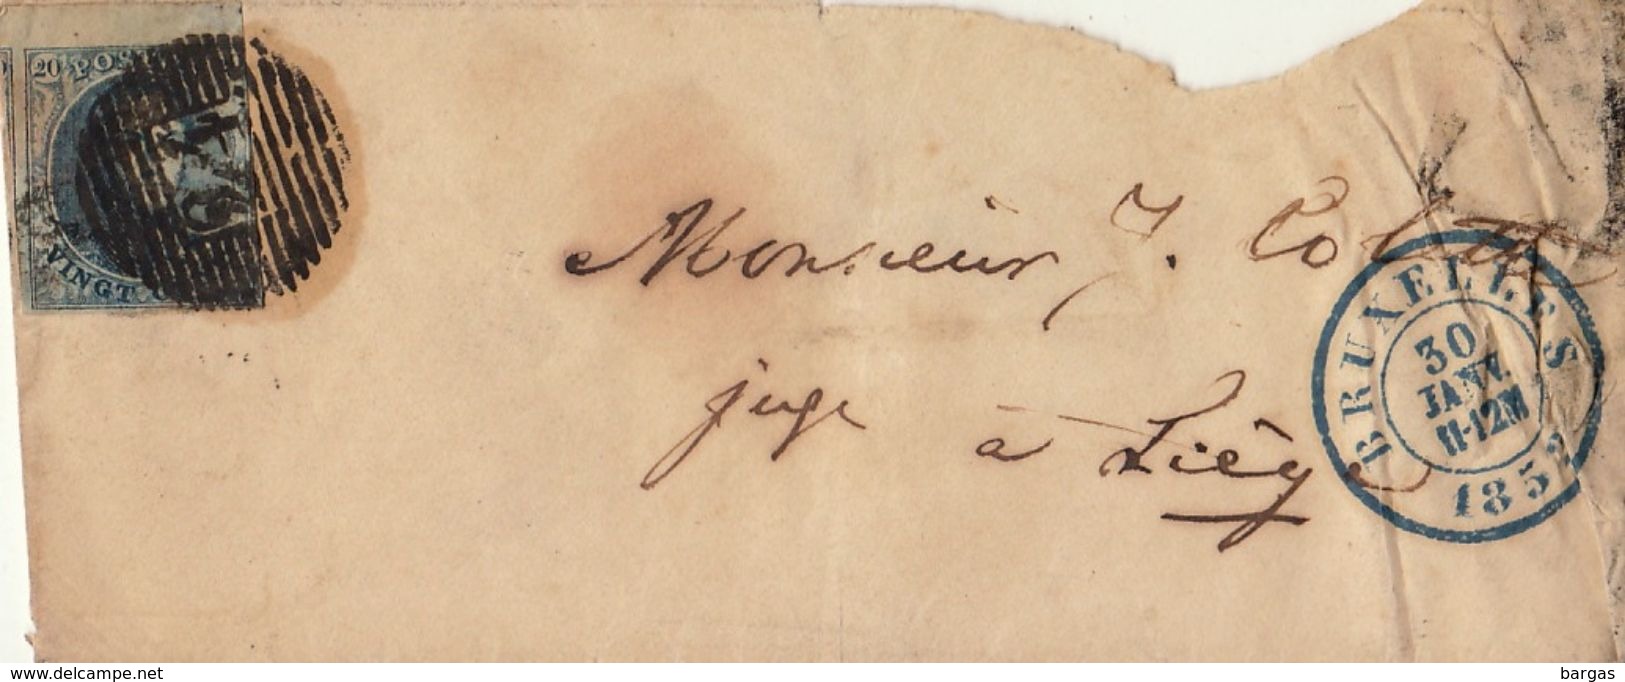 20 POST
24
VINGT C
Monsieur J.
juge
à Liège
BRUXELLES
30
JANV.
11-12M
185
delcampe.net
bargas